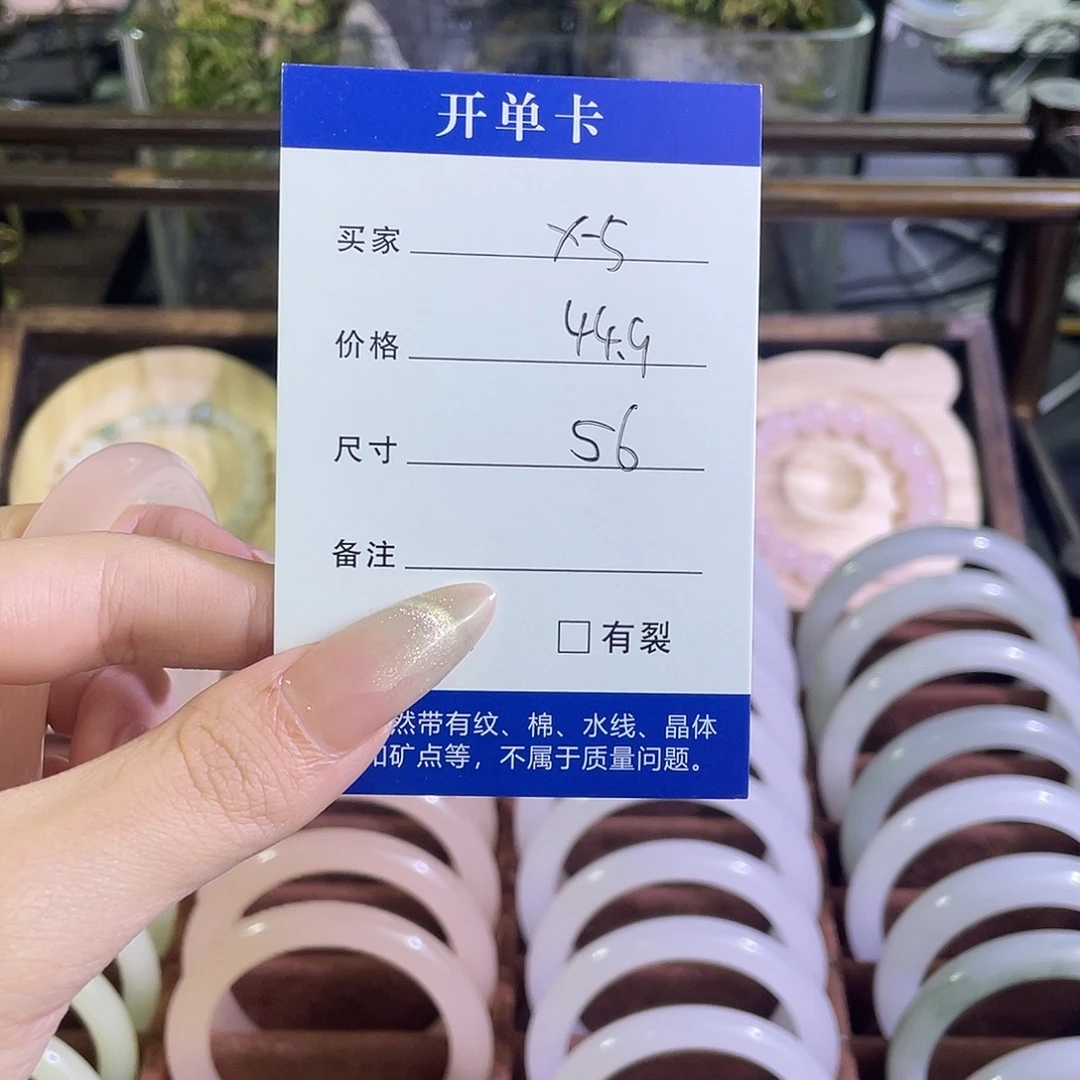 开单卡
买家 X-5
价格 44.9
尺寸 56
备注
有裂
然带有纹、棉、水线、晶体
矿点等，不属于质量问题。